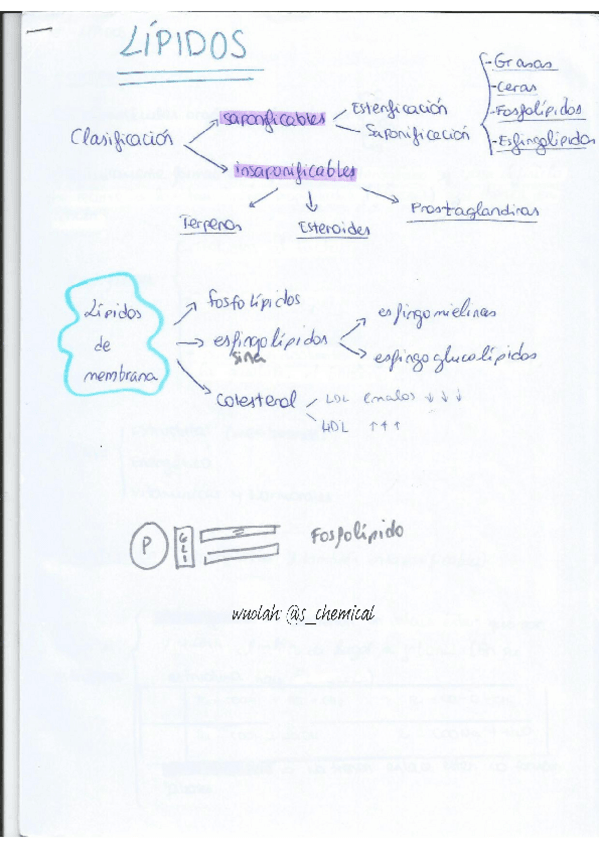 LÍPIDOS
Clasificación
saponificables
Esterificación
Saponificación
- Grasas
- Ceras
- Fosfolípidos
- Esfingolípidos
insaponificables
Terpenos
Esteroides
Prostaglandinas
Lípidos
de
membrana
fosfolípidos
esfingolípidos
sina
esfingomielinas
esfingoglucolípidos
Colesterol
LDL (malos ↓ ↓ ↓
HDL ↑ ↑ ↑
P
GLI
Fosfolípido
wuolah: @s_chemical